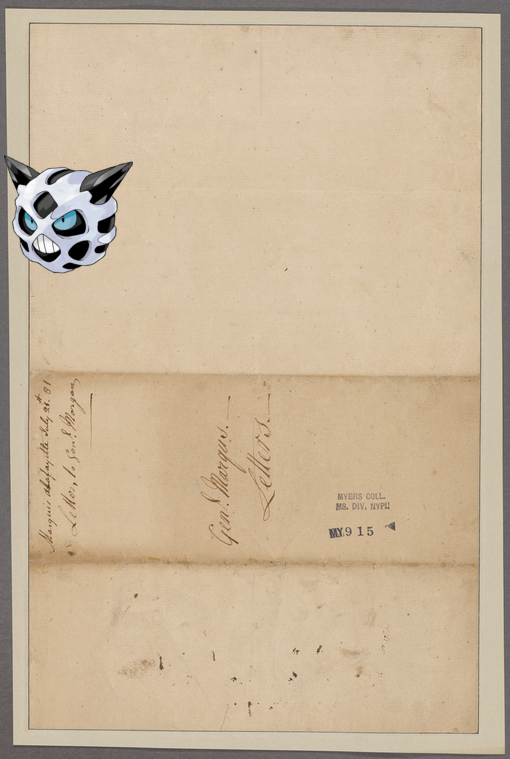 Marquis de Lafayette July 21st. 81
Letter, to Genl. Morgan
Genl. Morgan's.
Letters.
MYERS COLL.
MS. DIV. NYPL
MY 9 15